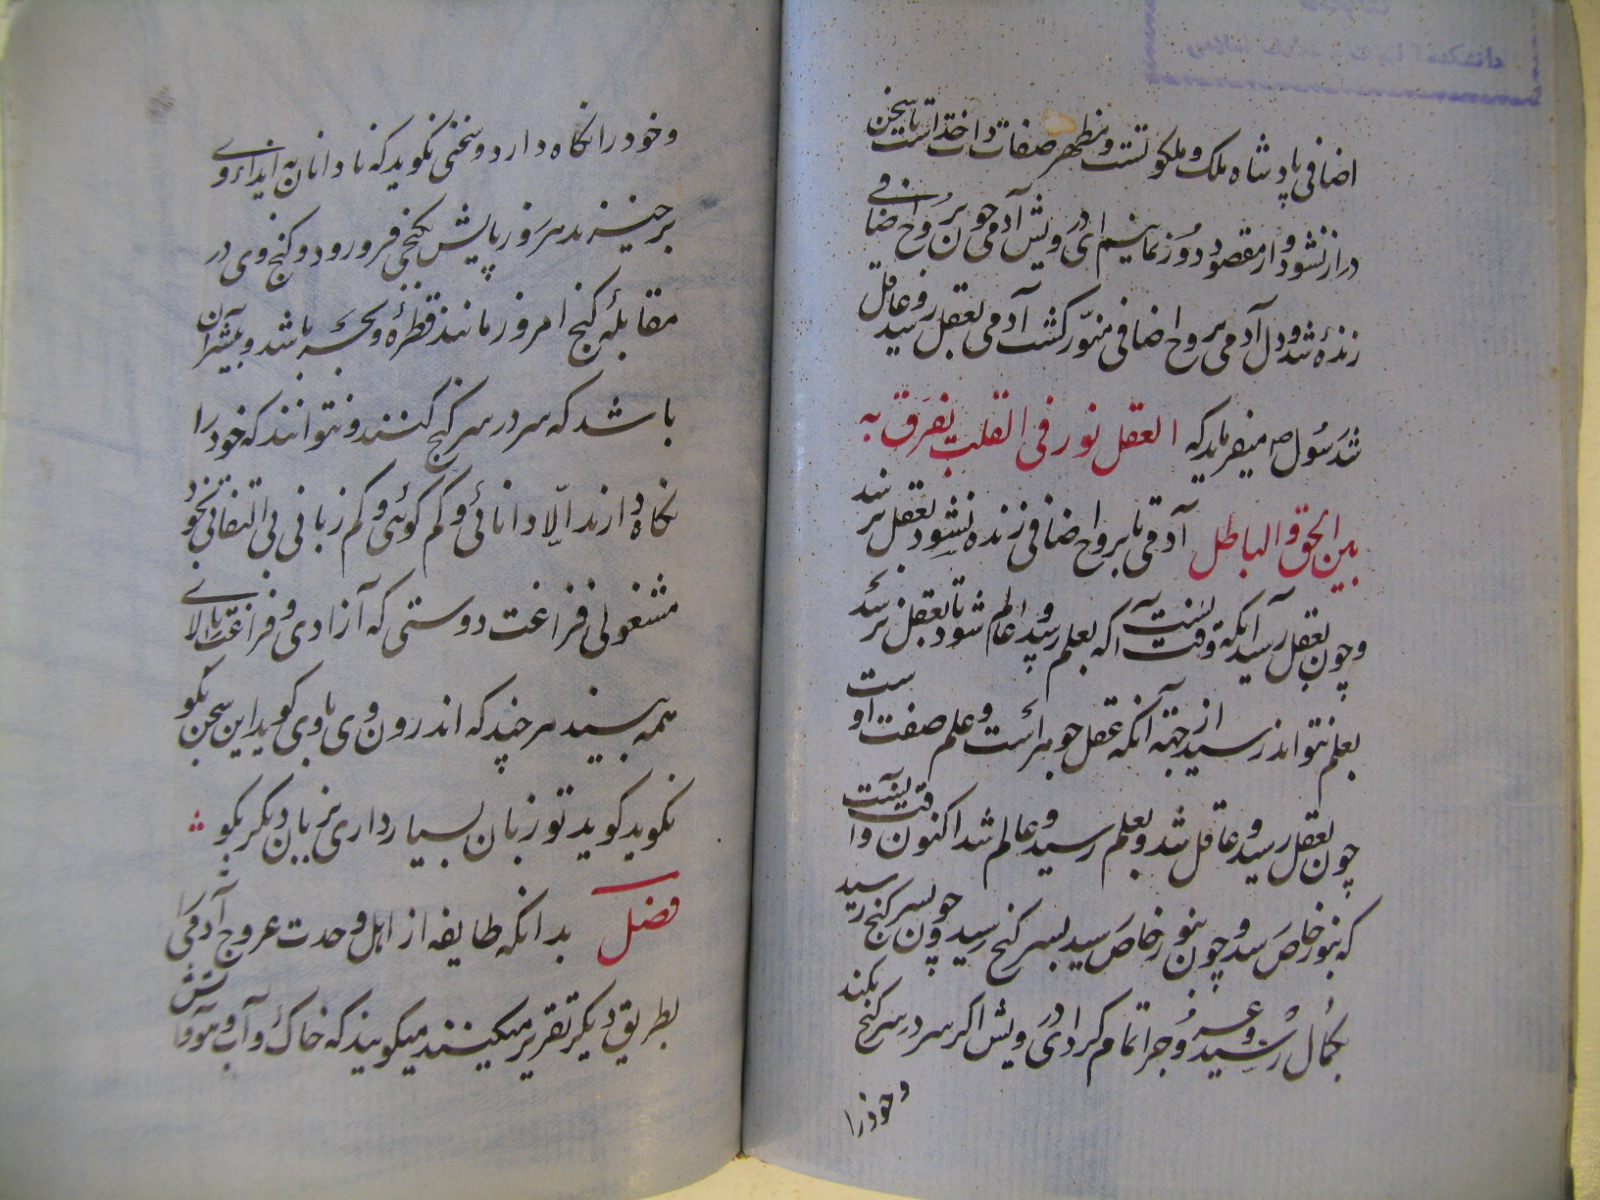 اضافی پادشاه ملک و ملکوتست و مظهر صفات ذات خداست تا سخن
دراز نشود و از مقصود دور نمانیم ای درویش آدمی چون بروح اضافی
زنده شد و دل آدمی بروح اضافی منور کشت آدمی بعقل رسید و عاقل
شد رسول ص میفرماید که العقل نور فی القلب یفرق به
بین الحق و الباطل آدمی تا بروح اضافی زنده نشود بعقل نرسد
و چون بعقل رسید آنکه وقت آنست که بعلم رسد و عالم شود تا بعقل نرسد
بعلم نتواند رسید از جهة آنکه عقل جوهر است و علم صفت اوست
چون بعقل رسید و عاقل شد و بعلم رسید و عالم شد اکنون وقت آنست
که بنور خاص رسد و چون بنور خاص رسید بسر کنج رسید و چون بسر کنج رسید
بکمال رسید و عروج را تمام کرد ای درویش اکر سر در سر کنج بکند
و خود را
و خود را نکاه دارد و سخنی نکوید که نادانان به ایذاء وی
برخیزند هر روز پایش بکنجی فرو رود و کنج وی در
مقابلهٔ کنج امروز مانند قطرهٔ و بحر باشد و بیشتر آن
باشد که سر در سر کنج کنند و نتوانند که خود را
نکاه دارند الّا دانائی و کم کوئی و کم زبانی بی التفاتی بخود
مشغولی فراغت دوستی که آزادی و فراغت بالای
همه بیند هر چند که اندرون وی با وی کوید این سخن بکو
نکوید کوید تو زبان بسیار داری بزبان دیکر بکو
فصل بدانکه طایفه از اهل وحدت عروج آدمی را
بطریق دیکر تقریر میکنند میکویند که خاک و آب و هوا و آتش